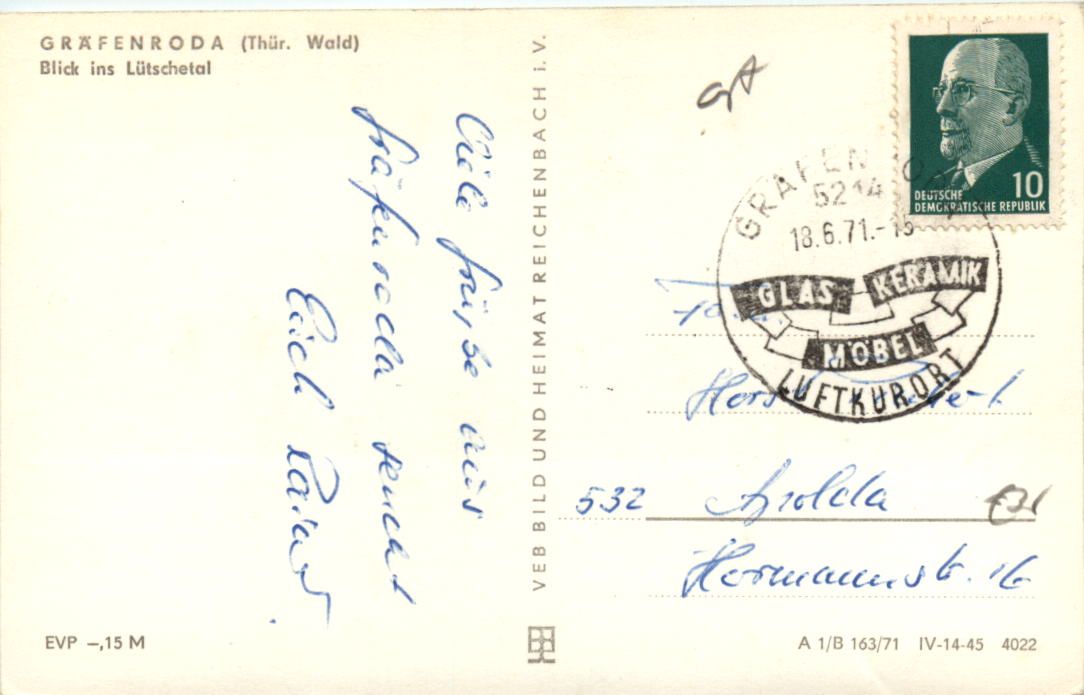 GRÄFENRODA (Thür. Wald)
Blick ins Lütschetal
Viele Grüße aus
Gräfenroda sendet
Euch
VEB BILD UND HEIMAT REICHENBACH i. V.
DEUTSCHE
DEMOKRATISCHE REPUBLIK
10
GRÄFENRODA
5214
18.6.71.-
GLAS
KERAMIK
MÖBEL
LUFTKURORT
Fam.
Horst
532 Apolda
Hormannstr. 16
EVP –,15 M
A 1/B 163/71 IV-14-45 4022